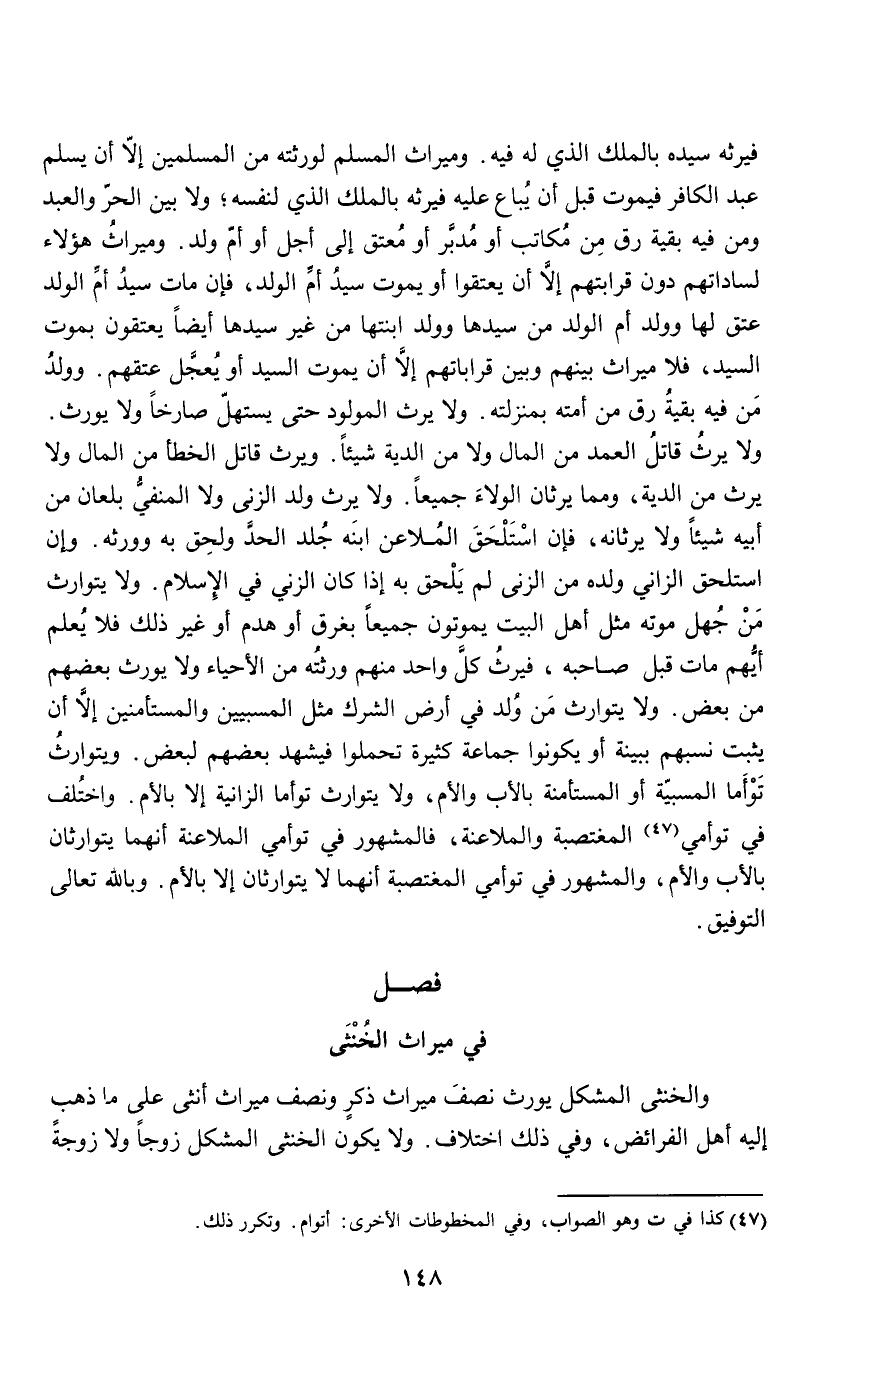 فيرثه سيده بالملك الذي له فيه. وميراث المسلم لورثته من المسلمين إلاّ أن يسلم
عبد الكافر فيموت قبل أن يُباع عليه فيرثه بالملك الذي لنفسه؛ ولا بين الحرّ والعبد
ومن فيه بقية رق مِن مُكاتب أو مُدبَّر أو مُعتق إلى أجل أو أمّ ولد. وميراثُ هؤلاء
لساداتهم دون قرابتهم إلاَّ أن يعتقوا أو يموت سيدُ أمِّ الولد، فإن مات سيدُ أمِّ الولد
عتق لها وولد أم الولد من سيدها وولد ابنتها من غير سيدها أيضاً يعتقون بموت
السيد، فلا ميراث بينهم وبين قراباتهم إلاَّ أن يموت السيد أو يُعجَّل عتقهم. وولدُ
مَن فيه بقيةُ رق من أمته بمنزلته. ولا يرث المولود حتى يستهلّ صارخاً ولا يورث.
ولا يرثُ قاتلُ العمد من المال ولا من الدية شيئاً. ويرث قاتل الخطأ من المال ولا
يرث من الدية، ومما يرثان الولاءَ جميعاً. ولا يرث ولد الزنى ولا المنفيُّ بلعان من
أبيه شيئاً ولا يرثانه، فإن اسْتَلْحَقَ المُلاعن ابنَه جُلد الحدَّ ولحِق به وورثه. وإن
استلحق الزاني ولده من الزنى لم يَلْحق به إذا كان الزني في الإسلام. ولا يتوارث
مَنْ جُهل موته مثل أهل البيت يموتون جميعاً بغرق أو هدم أو غير ذلك فلا يُعلم
أيُّهم مات قبل صاحبه، فيرثُ كلَّ واحد منهم ورثتُه من الأحياء ولا يورث بعضهم
من بعض. ولا يتوارث مَن وُلد في أرض الشرك مثل المسبيين والمستأمنين إلاَّ أن
يثبت نسبهم ببينة أو يكونوا جماعة كثيرة تحملوا فيشهد بعضهم لبعض. ويتوارثُ
تَوْأَما المسبيّة أو المستأمنة بالأب والأم، ولا يتوارث توأما الزانية إلا بالأم. واختُلف
في توأمي(٤٧) المغتصبة والملاعنة، فالمشهور في توأمي الملاعنة أنهما يتوارثان
بالأب والأم، والمشهور في توأمي المغتصبة أنهما لا يتوارثان إلا بالأم. وبالله تعالى
التوفيق.
فصـــل
في ميراث الخُنْثَى
والخنثى المشكل يورث نصفَ ميراث ذكرٍ ونصف ميراث أنثى على ما ذهب
إليه أهل الفرائض، وفي ذلك اختلاف. ولا يكون الخنثى المشكل زوجاً ولا زوجةً
(٤٧) كذا في ت وهو الصواب، وفي المخطوطات الأخرى: أتوام. وتكرر ذلك.
١٤٨